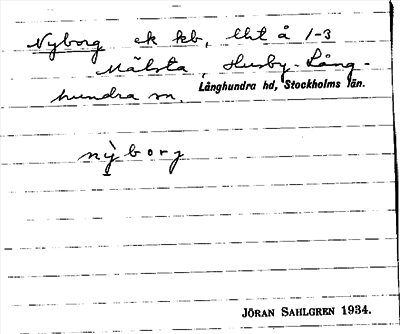 Nyborg ek kb, lht å 1-3
Mälsta, Husby-Lång-
hundra sn.
Långhundra hd, Stockholms län.
nỳborg
JÖRAN SAHLGREN 1934.